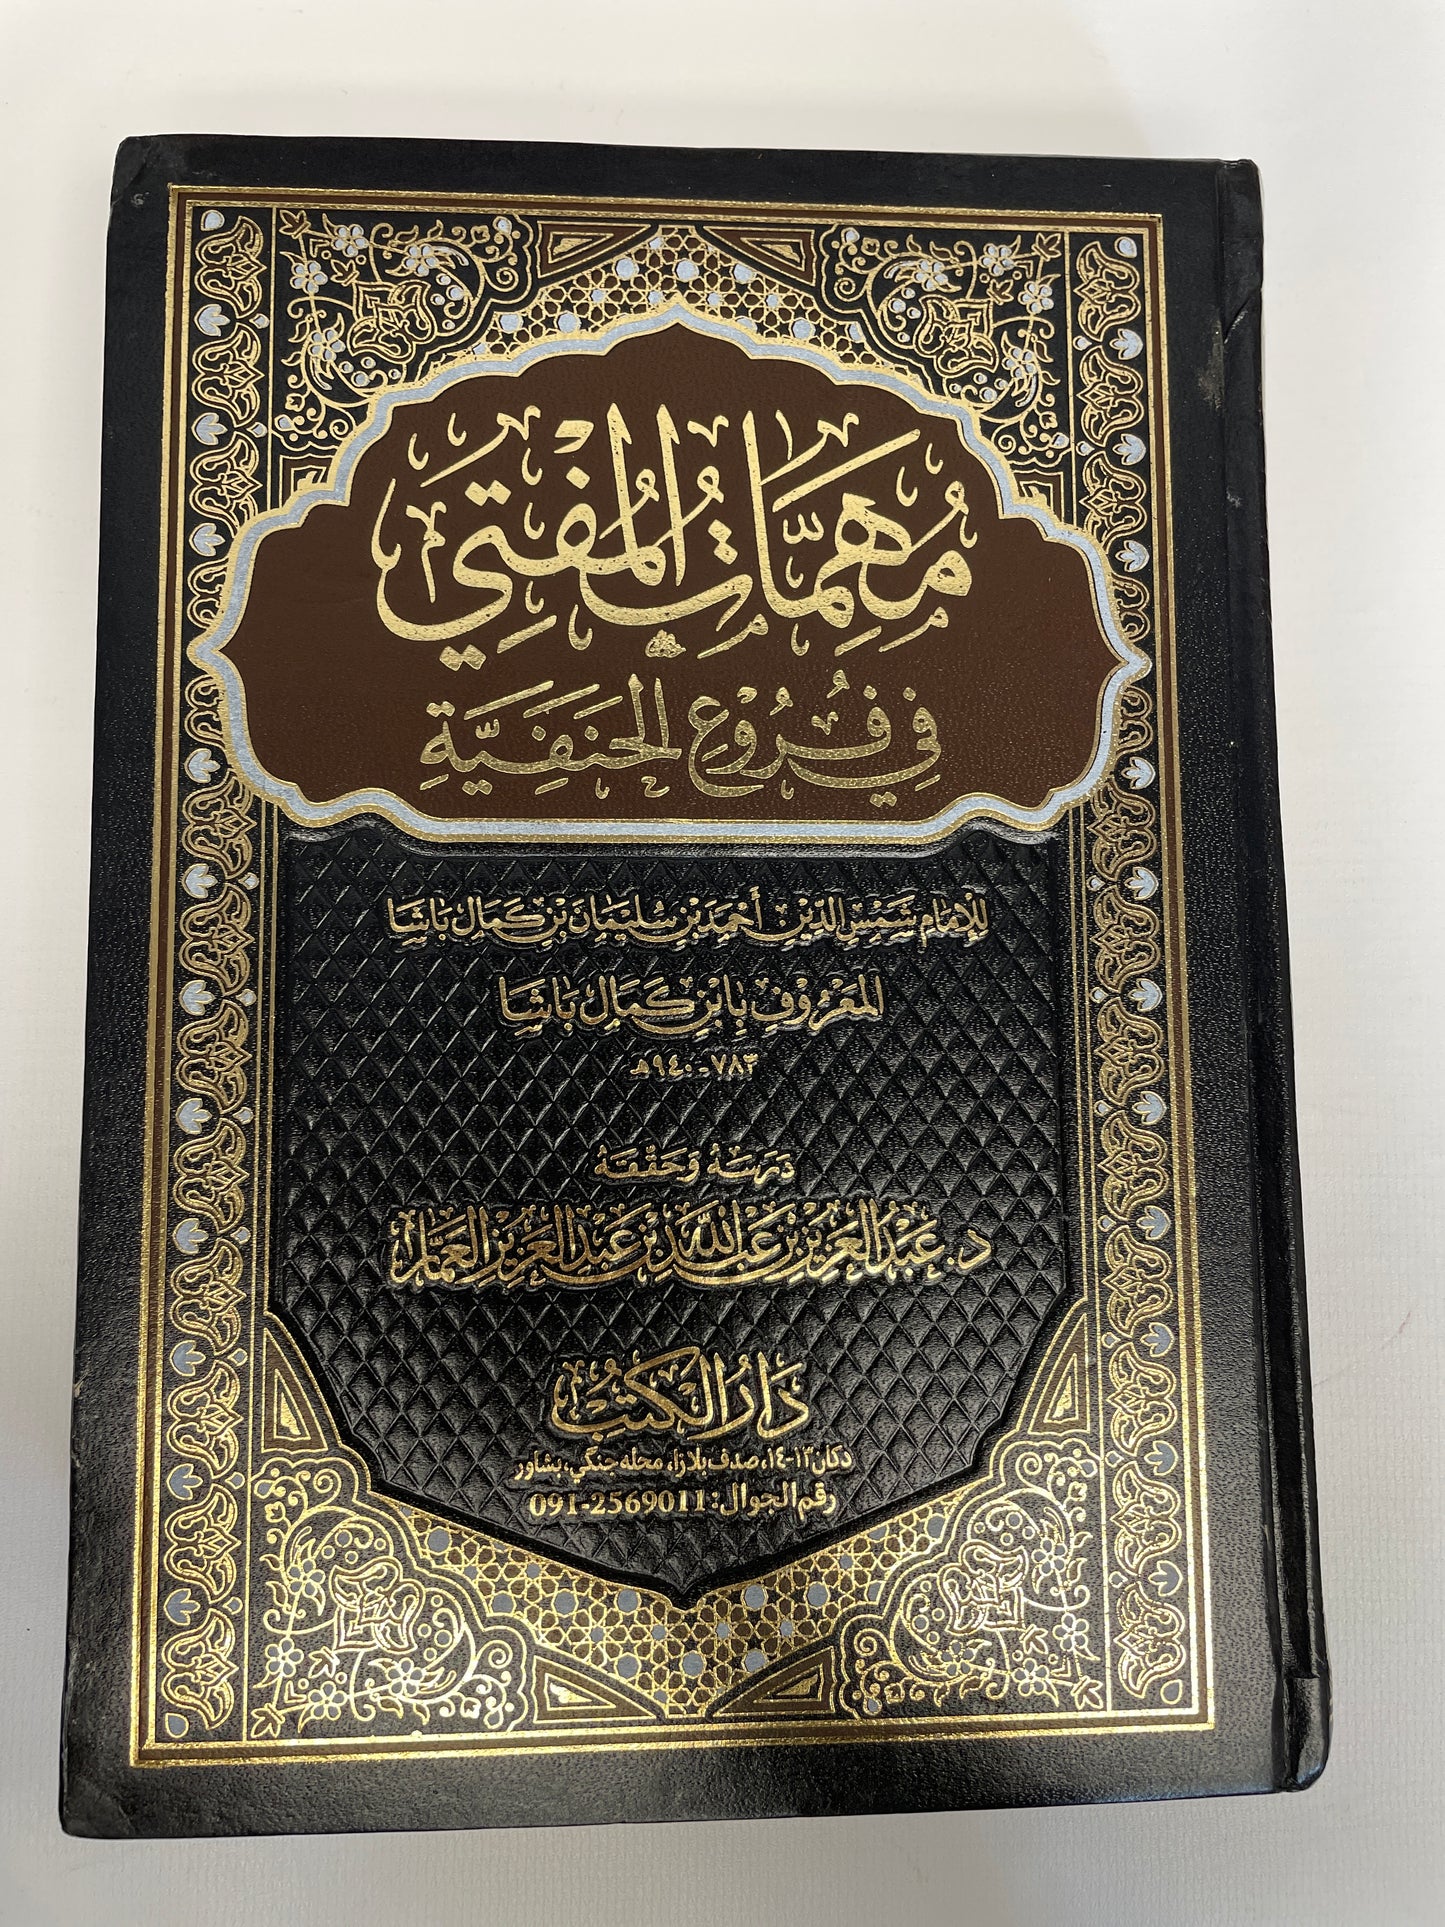 مُهِمَّاتُ الْمُفْتِي
فِي فُرُوْعِ الْحَنَفِيَّةِ
لِلْإِمَامِ شَمْسِ الدِّيْنِ أَحْمَدَ بْنِ سُلَيْمَانَ بْنِ كَمَالْ بَاشَا
الْمَعْرُوْفِ بِابْنِ كَمَالْ بَاشَا
٧٨٣-٩٤٠هـ
دَرَسَهُ وَحَقَّقَهُ
د. عَبْدُ الْعَزِيْزِ بْنِ عَبْدِ اللّٰهِ بْنِ عَبْدِ الْعَزِيْزِ الْعَمَّار
دَارُ الْكُتُبْ
دکان ١٣-١٤، صدف پلازا، محله جنگي، پشاور
رقم الجوال: 091-2569011